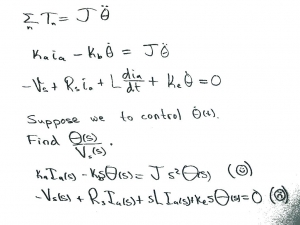 ∑ₙ Tₙ = J θ̈
Kₐiₐ - K_b θ̇ = J θ̈
-Vₛ + Rₛiₐ + L diₐ/dt + Kₑ θ̇ = 0
Suppose we to control θ̇(t).
Find Θ(s)/Vₛ(s).
KₐIₐ(s) - K_bsΘ(s) = J s² Θ(s) (☺)
-Vₛ(s) + RₛIₐ(s) + sLIₐ(s) + KₑsΘ(s) = 0